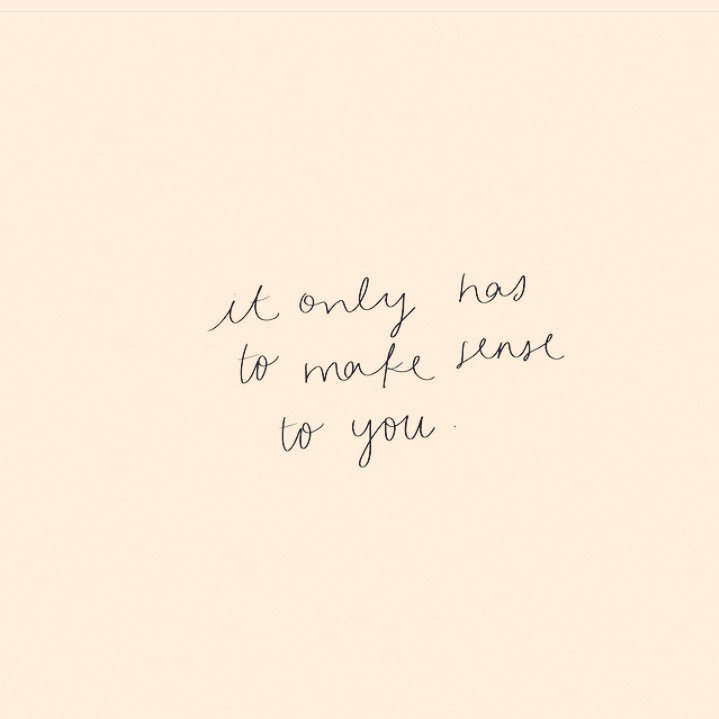 it only has
to make sense
to you.